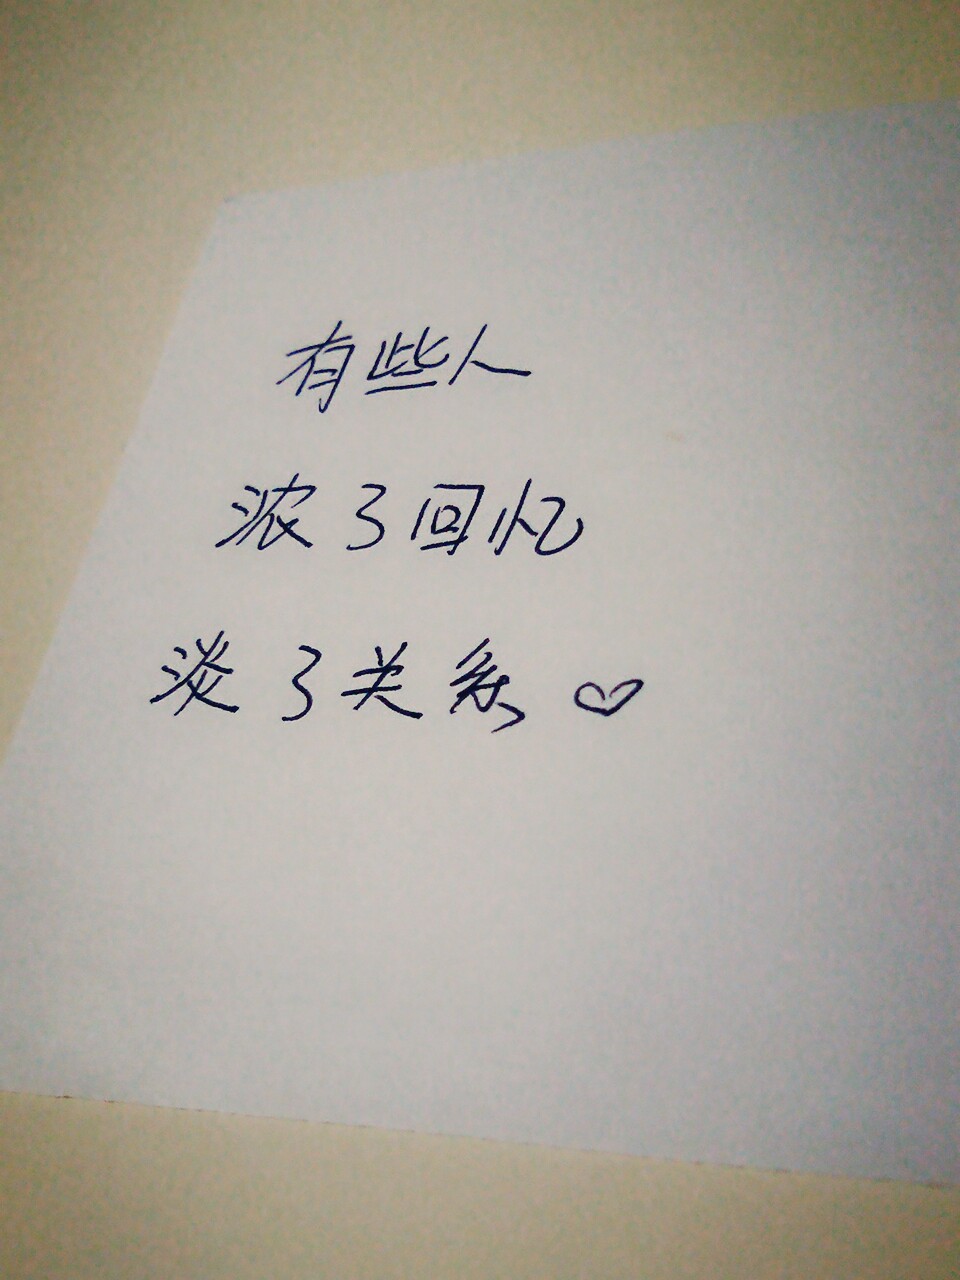 有些人
浓了回忆
淡了关系♡